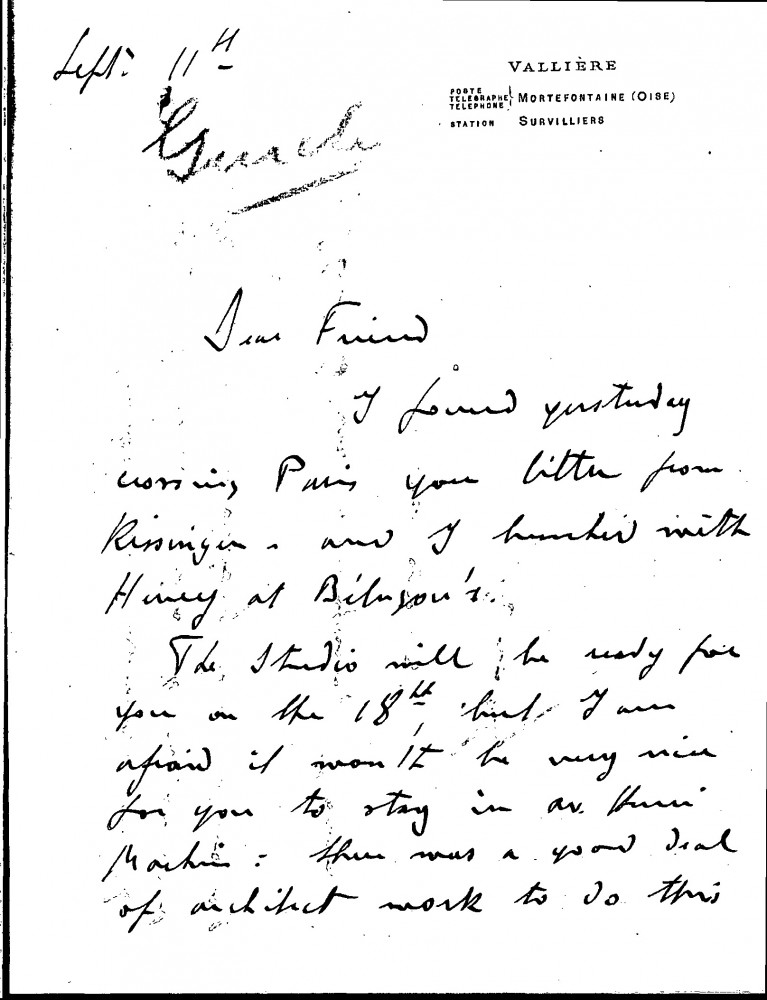 Sept. 11th
VALLIÈRE
POSTE
TELEGRAPHE
TELEPHONE
MORTEFONTAINE (OISE)
STATION SURVILLIERS
Dear Friend
I found yesterday
crossing Paris your letter from
Kissingen. and I lunched with
Henry at
The Studio will be ready for
you on the 18th, but I am
afraid it won't be very nice
for you to stay in av. Henri
Martin: there was a good deal
of architect work to do this